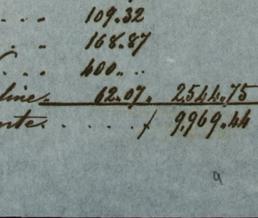 . . . 109.32
. . 168.87
. . . 400 „ „
line. 62.07. 2544.75
nte. . . . . . f 9,969.44
9